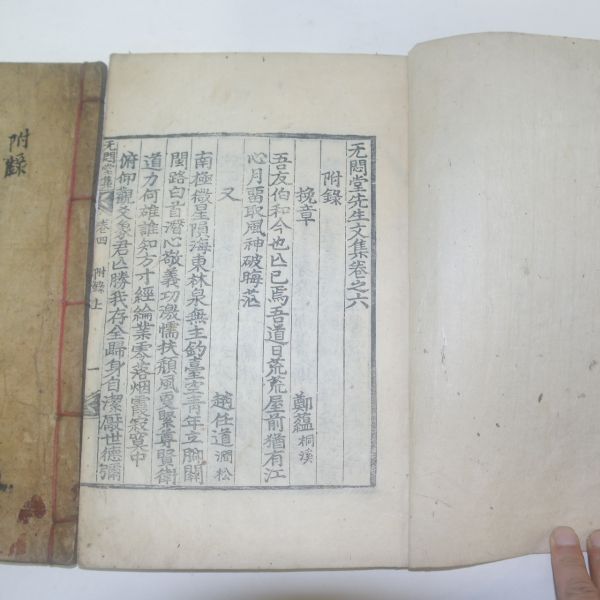 无悶堂先生文集卷之六
附錄
挽章
鄭蘊 桐溪
吾友伯和今也亡已焉吾道日荒荒屋前猶有江
心月留取風神破晦茫
又
趙任道 澗松
南極微星隕海東林泉無主釣臺空青年立脚關
閩路白首潛心敬義功激懦扶頹風夏緊尊賢衛
道力何雄誰知方寸經綸業零落烟霞寂寞中
俯仰觀爻象君亡勝我存全歸身自潔厭世德彌
无悶堂集
卷四
附錄上
一
附錄